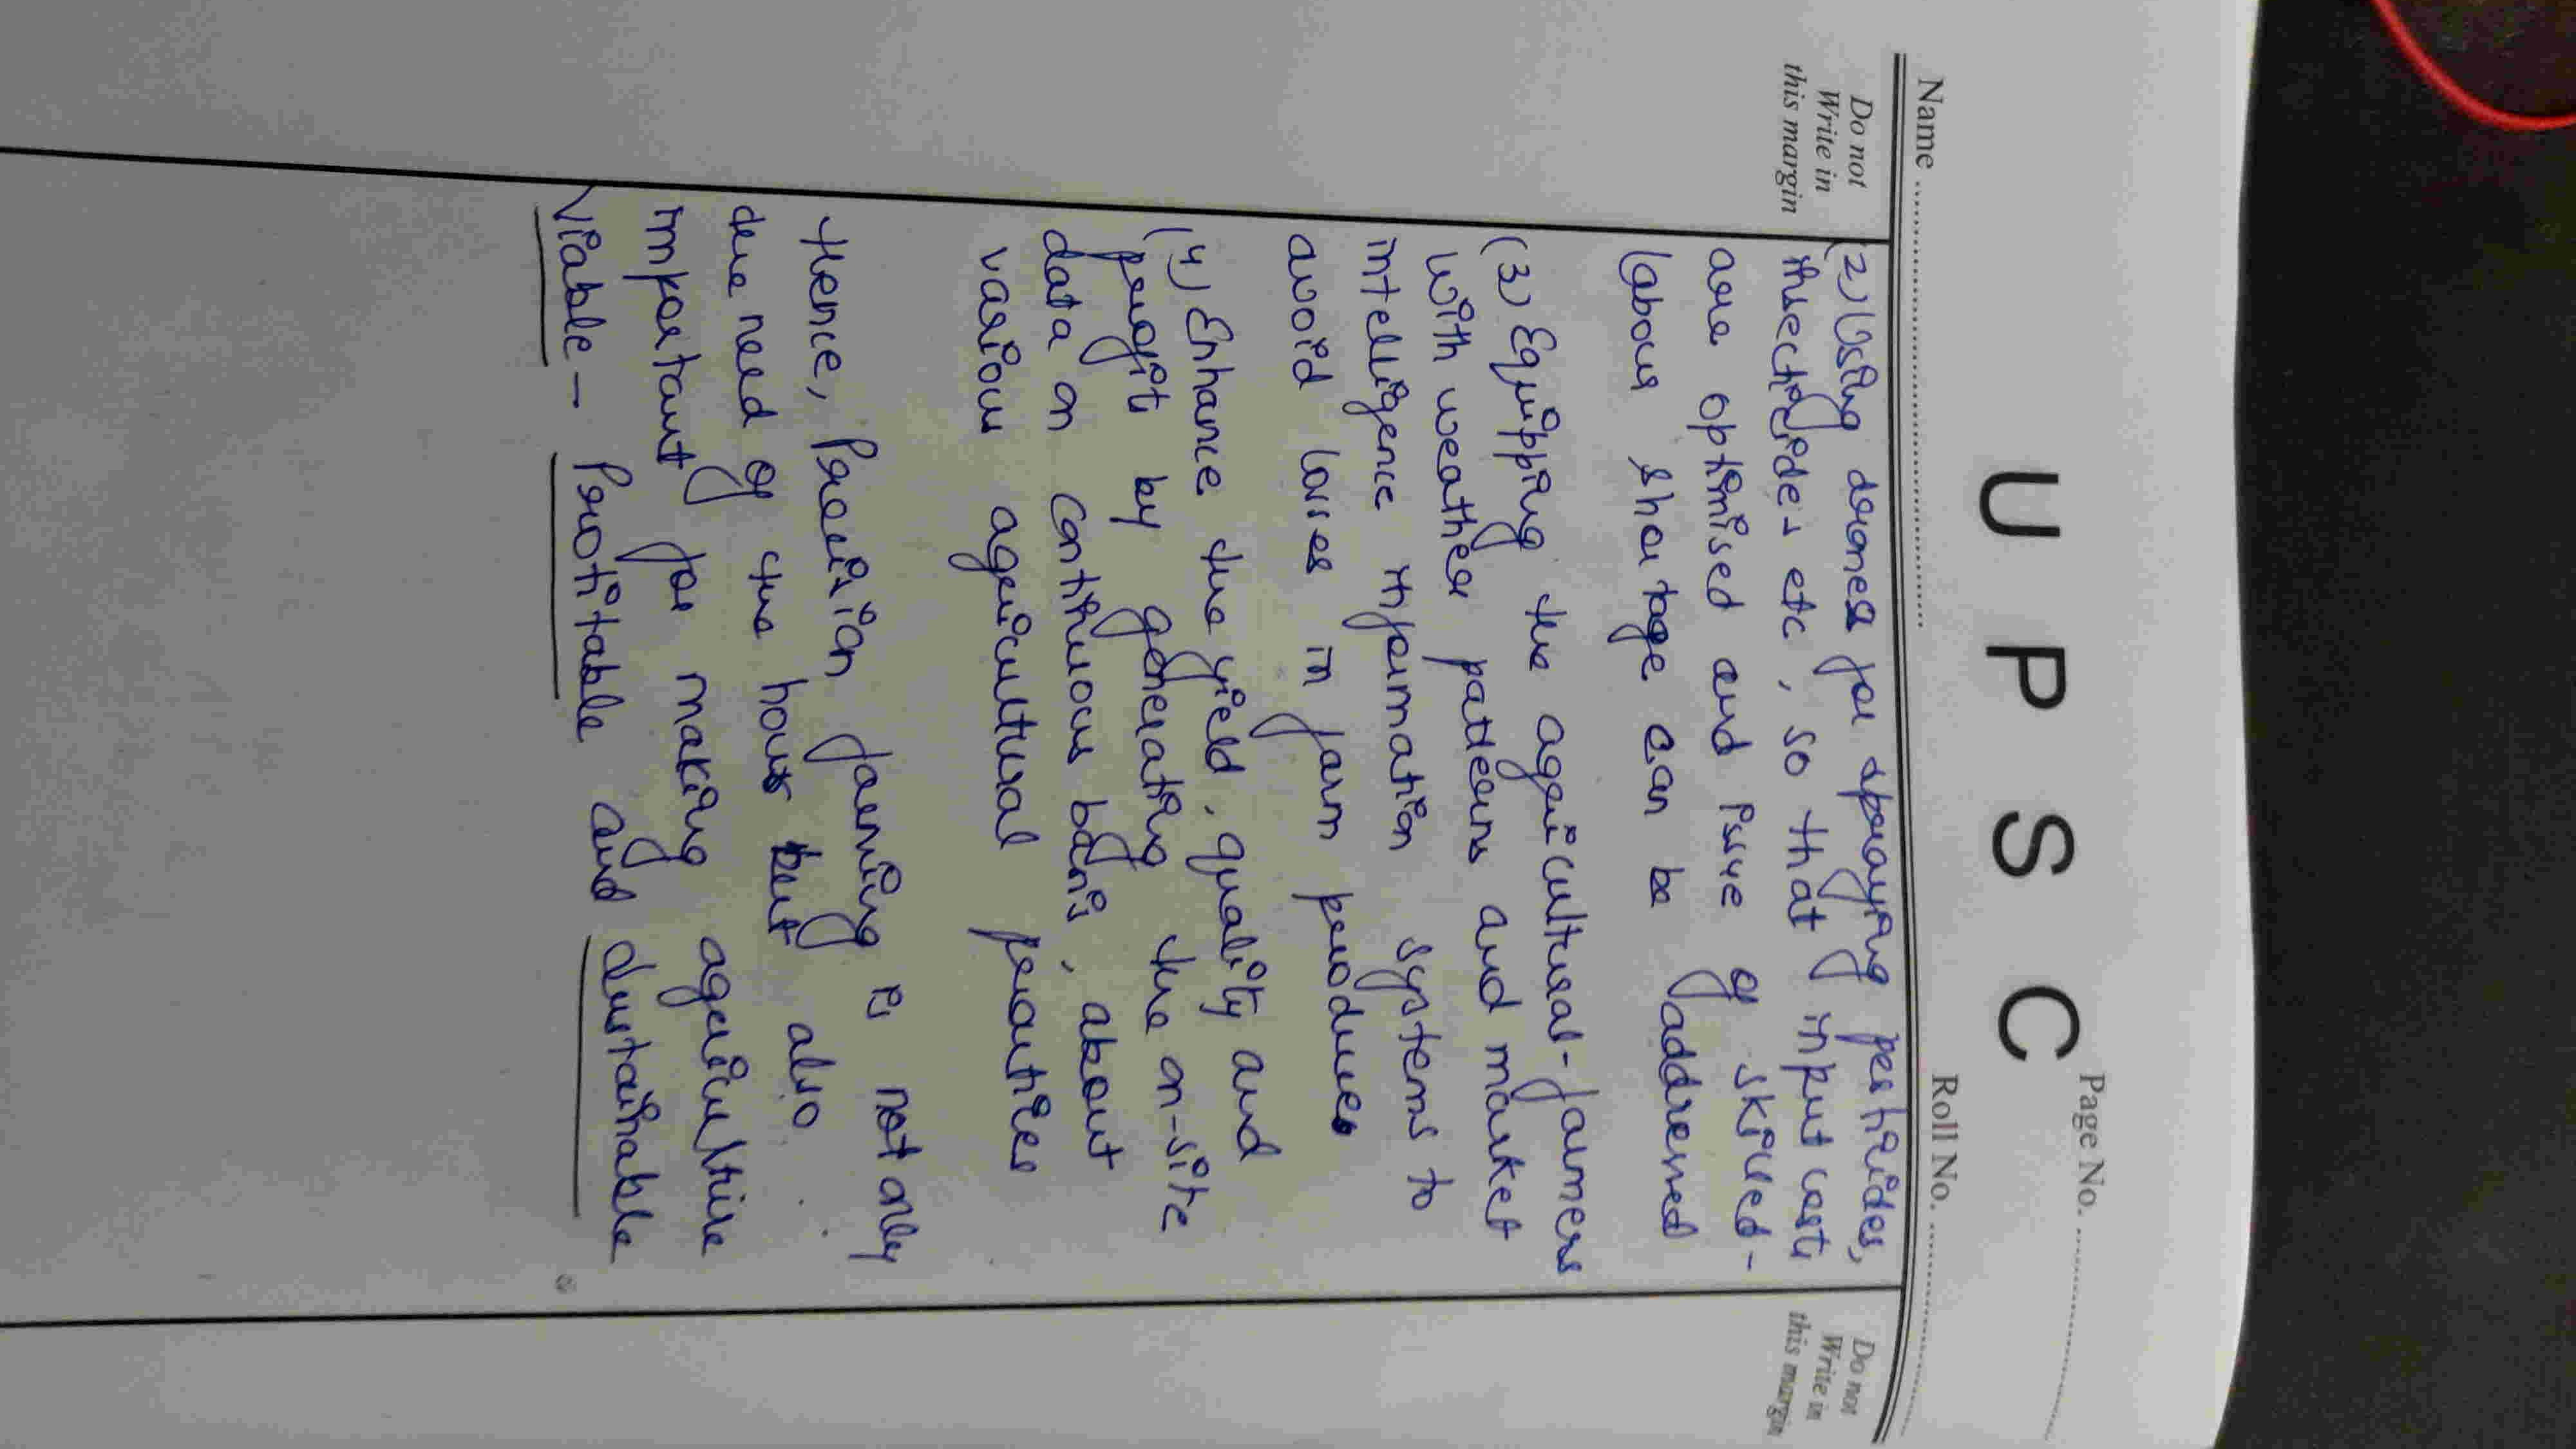 Page No. ..........
U P S C
Name .......... Roll No. ..........
Do not
Write in
this margin
Do not
Write in
this margin
(2) Using drones for spraying pesticides,
insecticides etc, so that input costs
are optimised and issue of skilled-
labour shortage can be addressed
(3) Equipping the agricultural-farmers
with weather patterns and market
intelligence information systems to
avoid losses in farm produces
(4) Enhance the yield, quality and
profit by generating the on-site
data on continuous basis, about
various agricultural practices
Hence, Precision farming is not only
the need of the hour but also
important for making agriculture
Viable - Profitable and Sustainable